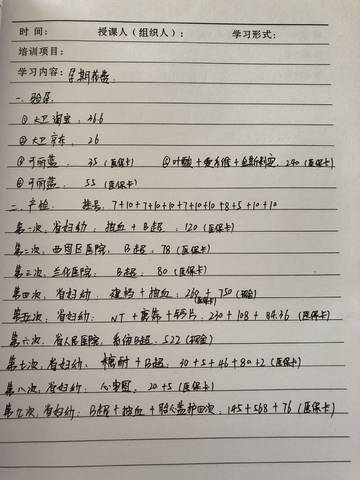 时 间： 授课人（组织人）： 学习形式：
培训项目：
学习内容：孕期花费
一、验孕
① 大卫 淘宝： 26.6
② 大卫 京东， 26
③ 可丽蓝， 35（医保卡） ⑤ 叶酸 + 240（医保卡）
④ 可丽蓝， 55（医保卡）
二、产检， 挂号：7+10+7+10+10+7+10+10+8+5+10+10
第一次，省妇幼：抽血 + B超： 120（医保卡）
第二次，西固区医院， B超，78（医保卡）
第三次，兰化医院， B超： 80（医保卡）
第四次，省妇幼： 建档 + 抽血：260（医保卡）+ 750（现金）
第五次：省妇幼： NT + 唐筛 + 钙片：230 + 108 + 84.36（医保卡）
第六次，省人民医院，系统B超，522（现金）
第七次，省妇幼， 糖耐 + B超： 30+5+46+80+2（医保卡）
第八次，省妇幼： 心电图， 20+5（医保卡）
第九次，省妇幼：B超 + 抽血 + 胎心监护四次，145+568+76（医保卡）